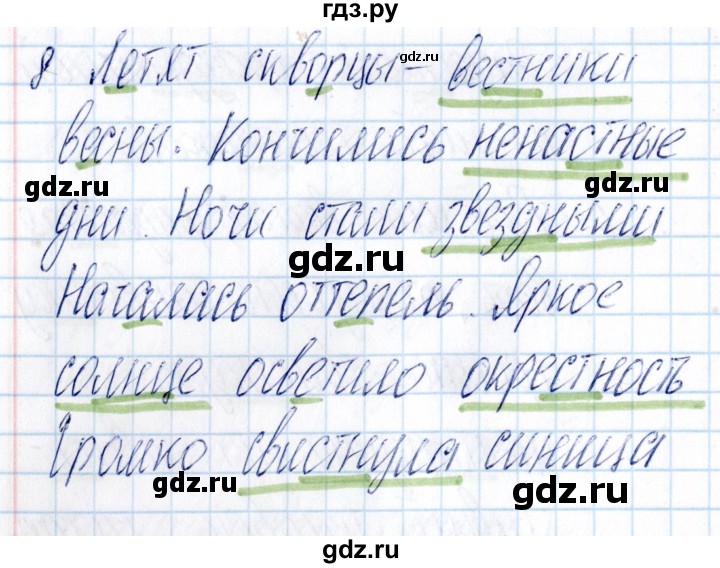 гдз.ру
8 Летят скворцы - вестники
gdz.ru
весны. Кончились ненастные
gdz.ru
gdz.ru
дни. Ночи стали звездными
gdz.ru
Началась оттепель. Яркое
солнце осветило окрестность
gdz.ru
Громко свистнула синица
gdz.ru
gdz.ru
gdz.ru